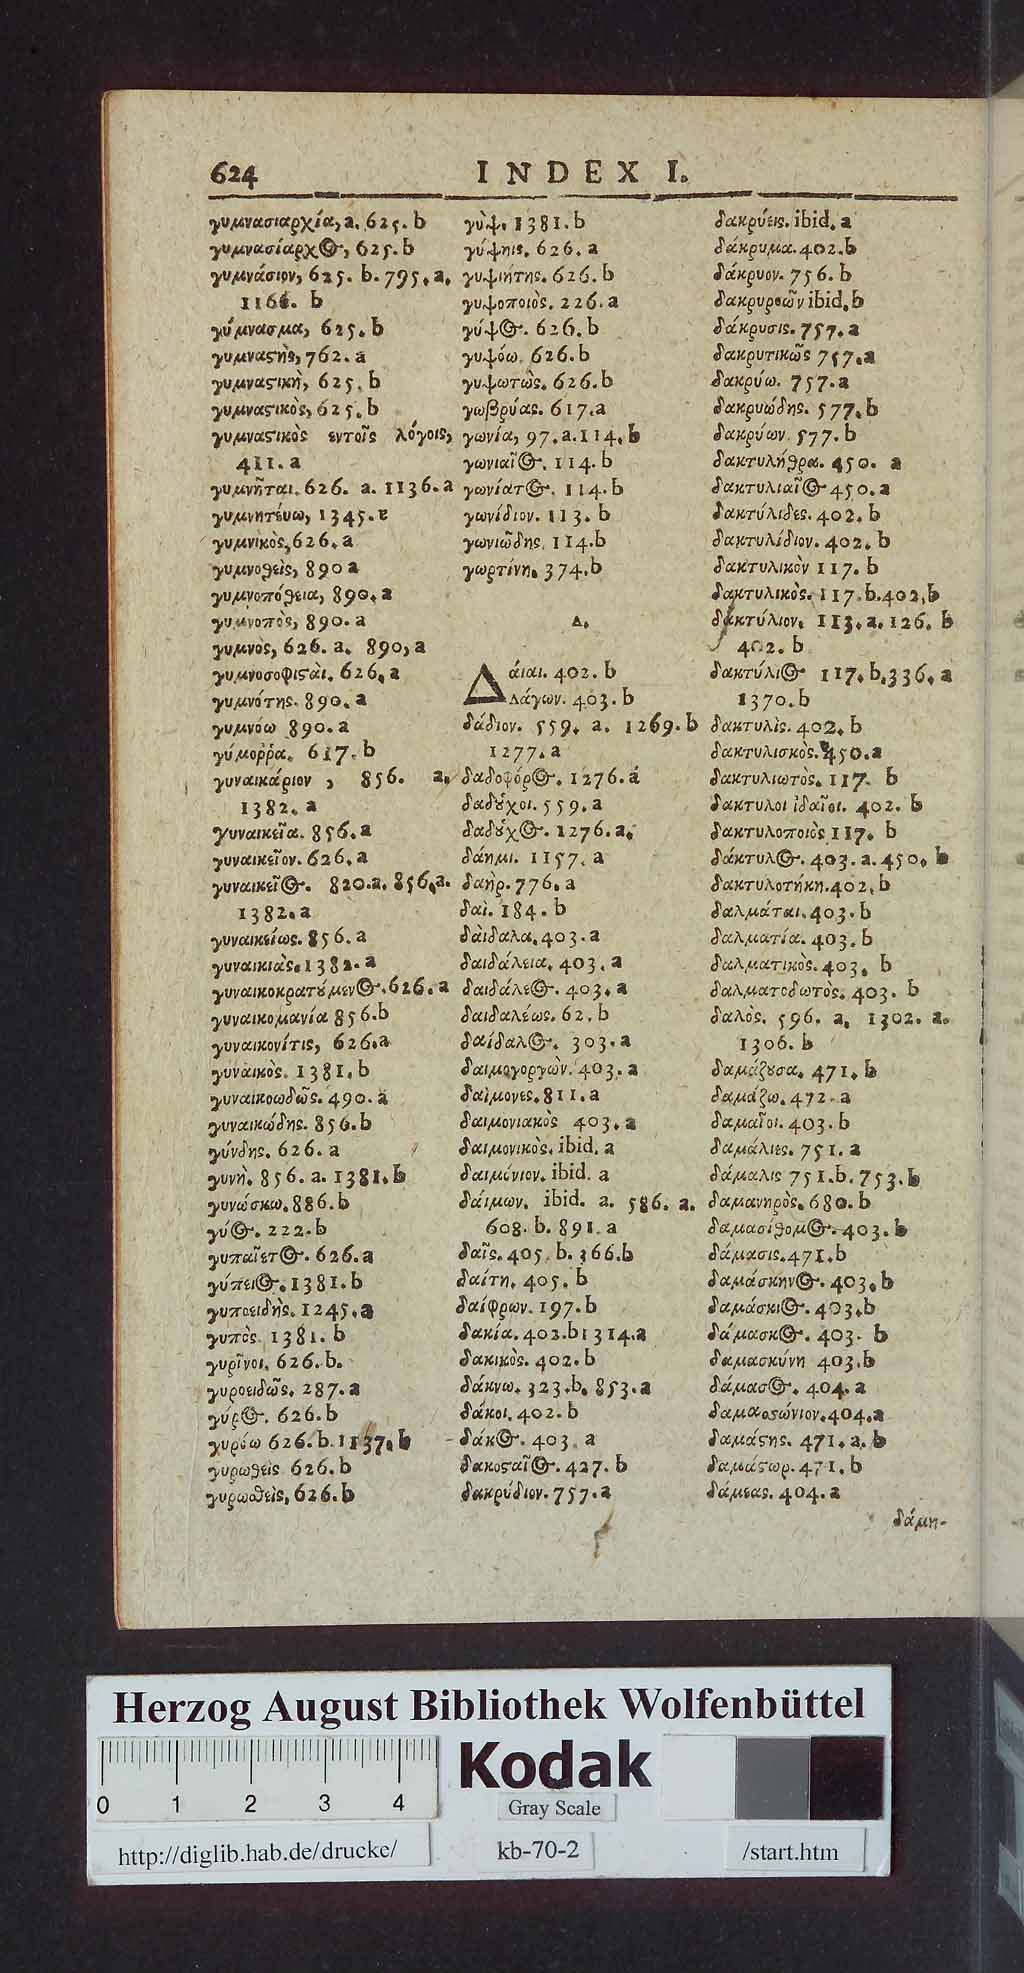 624
INDEX I.
γυμνασιαρχία, a. 625. b
γυμνασίαρχος, 625. b
γυμνάσιον, 625. b. 795. a.
1166. b
γύμνασμα, 625. b
γυμναςὴς, 762. a
γυμναςικὴ, 625. b
γυμναςικὸς, 625. b
γυμναςικὸς εντοῖς λόγοις,
411. a
γυμνῆται. 626. a. 1136. a
γυμνητέυω, 1345. e
γυμνικὸς, 626. a
γυμνοθεὶς, 890 a
γυμνοπόθεια, 890. a
γυμνοπὸς, 890. a
γυμνὸς, 626. a. 890, a
γυμνοσοφιςὰι. 626. a
γυμνότης. 890. a
γυμνόω 890. a
γύμοῤῥα. 617. b
γυναικάριον , 856. a.
1382. a
γυναικεῖα. 856. a
γυναικεῖον. 626. a
γυναικεῖος. 820. a. 856. a.
1382. a
γυναικείως. 856. a
γυναικιὰς. 1382. a
γυναικοκρατȣ́μενος. 626. a
γυναικομανία 856. b
γυναικονίτις, 626. a
γυναικὸς. 1381. b
γυναικοωδῶς. 490. a
γυναικώδης. 856. b
γύνδης. 626. a
γυνὴ. 856. a. 1381. b
γυνώσκω. 886. b
γύος. 222. b
γυπαῖετος. 626. a
γύπειος. 1381. b
γυποειδὴς. 1245. a
γυπὸς. 1381. b
γυρῖνοι. 626. b.
γυροειδῶς. 287. a
γύρος. 626. b
γυρόω 626. b. 1137. b
γυρωθεὶς 626. b
γυρωθεὶς, 626. b
γὺψ. 1381. b
γύψηις. 626. a
γυψιήτης. 626. b
γυψοποιὸς. 226. a
γύψος. 626. b
γυψόω. 626. b
γυψωτὼς. 626. b
γωβρύας. 617. a
γωνία, 97. a. 114. b
γωνιαῖος. 114. b
γωνίατος. 114. b
γωνίδιον. 113. b
γωνιῶδης. 114. b
γωρτίνη. 374. b
Δ.
Δάιαι. 402. b
λάγων. 403. b
δάδιον. 559. a. 1269. b
1277. a
δαδοφόρος. 1276. a
δαδȣ́χοι. 559. a
δαδȣ́χος. 1276. a.
δάημι. 1157. a
δαὴρ. 776. a
δαὶ. 184. b
δὰιδαλα. 403. a
δαιδάλεια. 403. a
δαιδάλεος. 403. a
δαιδαλέως. 62. b
δαίδαλος. 303. a
δαιμογοργὼν. 403. a
δαὶμονες. 811. a
δαιμονιακὸς 403. a
δαιμονικὸς. ibid. a
δαιμόνιον. ibid. a
δάιμων. ibid. a. 586. a.
608. b. 891. a
δαῖς. 405. b. 366. b
δαίτη. 405. b
δαίφρων. 197. b
δακία. 402. b 1314. a
δακικὸς. 402. b
δάκνω. 323. b. 853. a
δάκοι. 402. b
δάκος. 403. a
δακοςαῖος. 427. b
δακρύδιον. 757. a
δακρύεις. ibid. a
δάκρυμα. 402. b
δάκρυον. 756. b
δακρυρεῶν ibid. b
δάκρυσις. 757. a
δακρυτικῶς 757. a
δακρύω. 757. a
δακρυώδης. 577. b
δακρύων 577. b
δακτυλήθρα. 450. a
δακτυλιαῖος 450. a
δακτύλιδες. 402. b
δακτυλίδιον. 402. b
δακτυλικὸν 117. b
δακτυλικὸς. 117. b. 402. b
δακτύλιον. 113. a. 126. b
402. b
δακτύλιος 117. b. 336. a
1370. b
δακτυλὶς. 402. b
δακτυλισκὸς. 450. a
δακτυλιωτὸς. 117. b
δακτυλοι ἰδαῖοι. 402. b
δακτυλοποιὸς 117. b
δάκτυλος. 403. a. 450. b
δακτυλοτήκη. 402. b
δαλμάται. 403. b
δαλματία. 403. b
δαλματικὸς. 403. b
δαλματοδωτὸς. 403. b
δαλὸς. 596. a. 1302. a.
1306. b
δαμάζȣσα. 471. b
δαμάζω. 472. a
δαμαῖοι. 403. b
δαμάλιες. 751. a
δάμαλις 751. b. 753. b
δαμανηρὸς. 680. b
δαμασίθομος. 403. b
δάμασις. 471. b
δαμάσκηνος. 403. b
δαμάσκιος. 403. b
δάμασκος. 403. b
δαμασκύνη 403. b
δάμασος. 404. a
δαμαοςώνιον. 404. a
δαμάςης. 471. a. b
δαμάςωρ. 471. b
δάμεας. 404. a
δάμη-
Herzog August Bibliothek Wolfenbüttel
0 1 2 3 4
Kodak
Gray Scale
http://diglib.hab.de/drucke/
kb-70-2
/start.htm